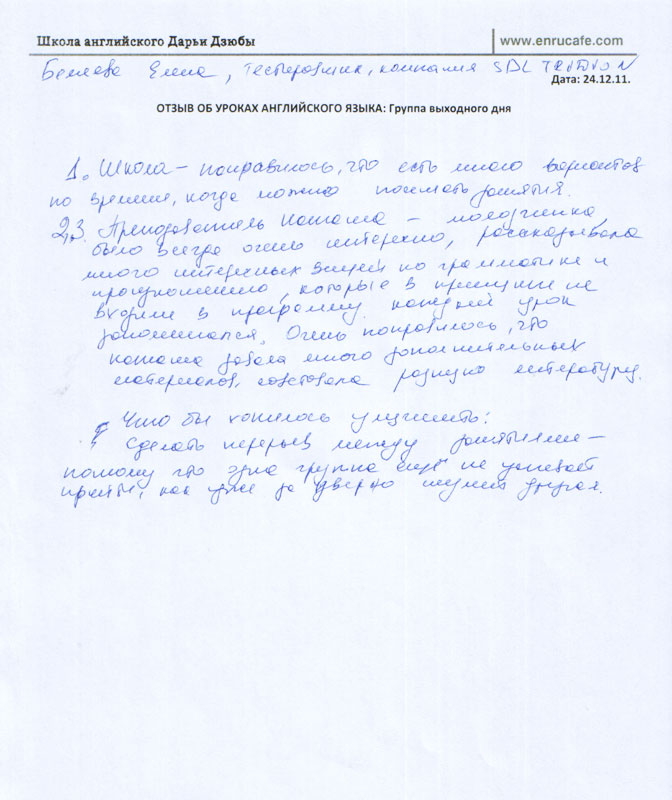 Школа английского Дарьи Дзюбы
www.enrucafe.com
Беляева Елена, тестировщик, компания SDL TRIDION
Дата: 24.12.11.
ОТЗЫВ ОБ УРОКАХ АНГЛИЙСКОГО ЯЗЫКА: Группа выходного дня
1. Школа – понравилось, что есть много вариантов
по времени, когда можно посещать занятия.
2,3. Преподаватель Наташа – молодчинка,
было всегда очень интересно, рассказывала
много интересных вещей по грамматике и
произношению, которые в принципе не
входили в программу. каждый урок
запоминался. Очень понравилось, что
Наташа давала много дополнительных
материалов, советовала разную литературу.
Что бы хотелось улучшить:
Сделать перерыв между занятиями –
потому что одна группа ещё не успевает
уйти, как уже за дверью шумит другая.